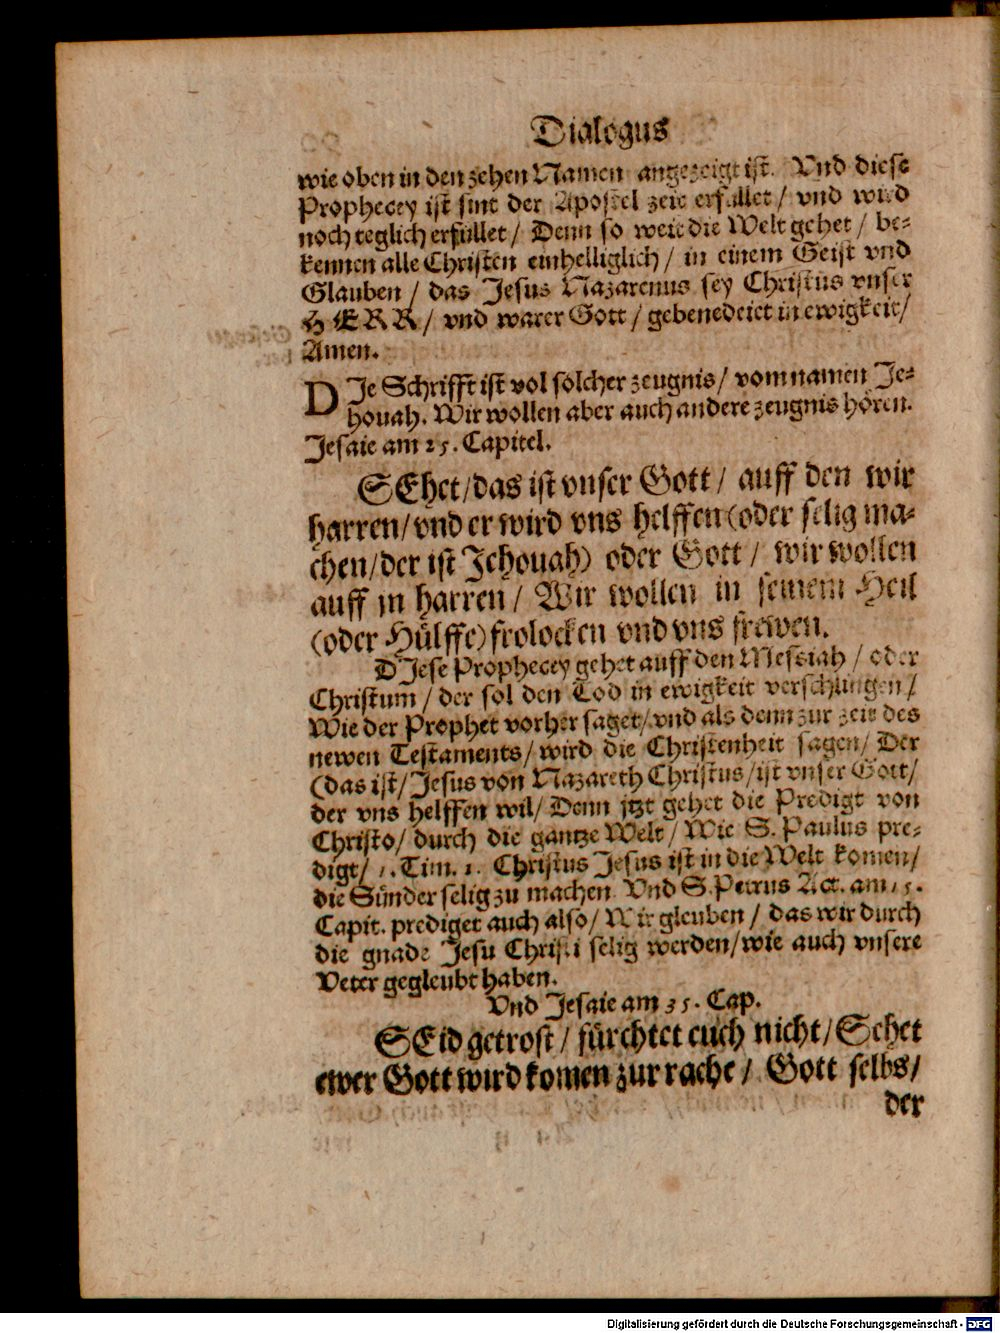 Dialogus
wie oben in den zehen Namen angezeigt ist. Vnd diese
Prophecey ist sint der Apostel zeit erfüllet / vnd wird
noch teglich erfüllet / Denn so weit die Welt gehet / be-
kennen alle Christen einhelliglich / in einem Geist vnd
Glauben / das Jesus Nazarenus sey Christus vnser
HERR / vnd warer Gott / gebenedeiet in ewigkeit /
Amen.
DJe Schrifft ist vol solcher zeugnis / vom namen Je-
houah. Wir wollen aber auch andere zeugnis hören.
Jesaie am 25. Capitel.
SEhet / das ist vnser Gott / auff den wir
harren / vnd er wird vns helffen (oder selig ma-
chen / der ist Jehouah) oder Gott / wir wollen
auff jn harren / Wir wollen in seinem Heil
(oder Hülffe) frolocken vnd vns frewen.
DJese Prophecey gehet auff den Messiah / oder
Christum / der sol den Tod in ewigkeit verschlingen /
Wie der Prophet vorher saget / vnd als denn zur zeit des
newen Testaments / wird die Christenheit sagen / Der
(das ist / Jesus von Nazareth Christus / ist vnser Gott /
der vns helffen wil / Denn jtzt gehet die Predigt von
Christo / durch die gantze Welt / Wie S. Paulus pre-
digt / 1. Tim. 1. Christus Jesus ist in die Welt komen /
die Sünder selig zu machen Vnd S. Petrus Act. am 15.
Capit. prediget auch also / Wir gleuben / das wir durch
die gnade Jesu Christi selig werden / wie auch vnsere
Veter gegleubt haben.
Vnd Jesaie am 35. Cap.
SEid getrost / fürchtet euch nicht / Sehet
ewer Gott wird komen zur rache / Gott selbs /
der
Digitalisierung gefördert durch die Deutsche Forschungsgemeinschaft - DFG